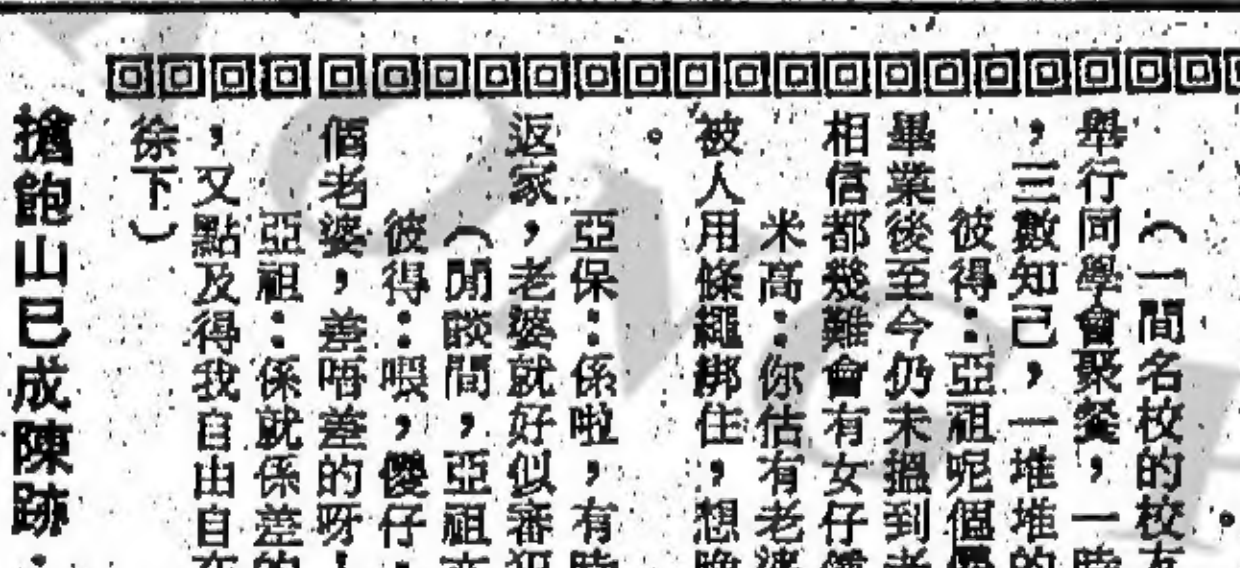 （一間名校的校友
舉行同學會聚餐，一時
，三數知己，一堆堆的
彼得：亞祖呢個優
畢業後至今仍未搵到老
相信都幾難會有女仔鍾
米高：你估有老婆
被人用條繩綁住，想晚
。
亞保：係啦，有時
返家，老婆就好似審犯
（閒談間，亞祖亦
彼得：喂，傻仔，
個老婆，差唔差的呀！
亞祖：係就係差的
，又點及得我自由自在
徐下）
搶飽山已成陳跡．